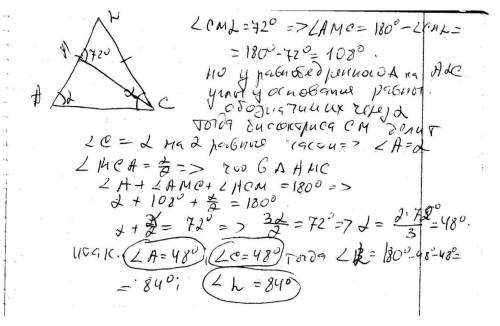 L
M 72°
A α α C
∠CML=72° => ∠AMC = 180° - ∠CML=
= 180° - 72° = 108°.
но у равнобедренного Δ на ALC
углы у основания равны.
обозначим их через α
тогда биссектриса CM делит
∠C = α на 2 равные части => ∠A=α
∠MCA = α/2 => из ΔAMC
∠A + ∠AMC + ∠ACM = 180° =>
α + 108° + α/2 = 180°
α + α/2 = 72° => 3α/2 = 72° => α = 2·72°/3 = 48°.
итак. ∠A = 48° ∠C = 48° тогда ∠L = 180°-48°-48°=
= 84°; ∠L = 84°